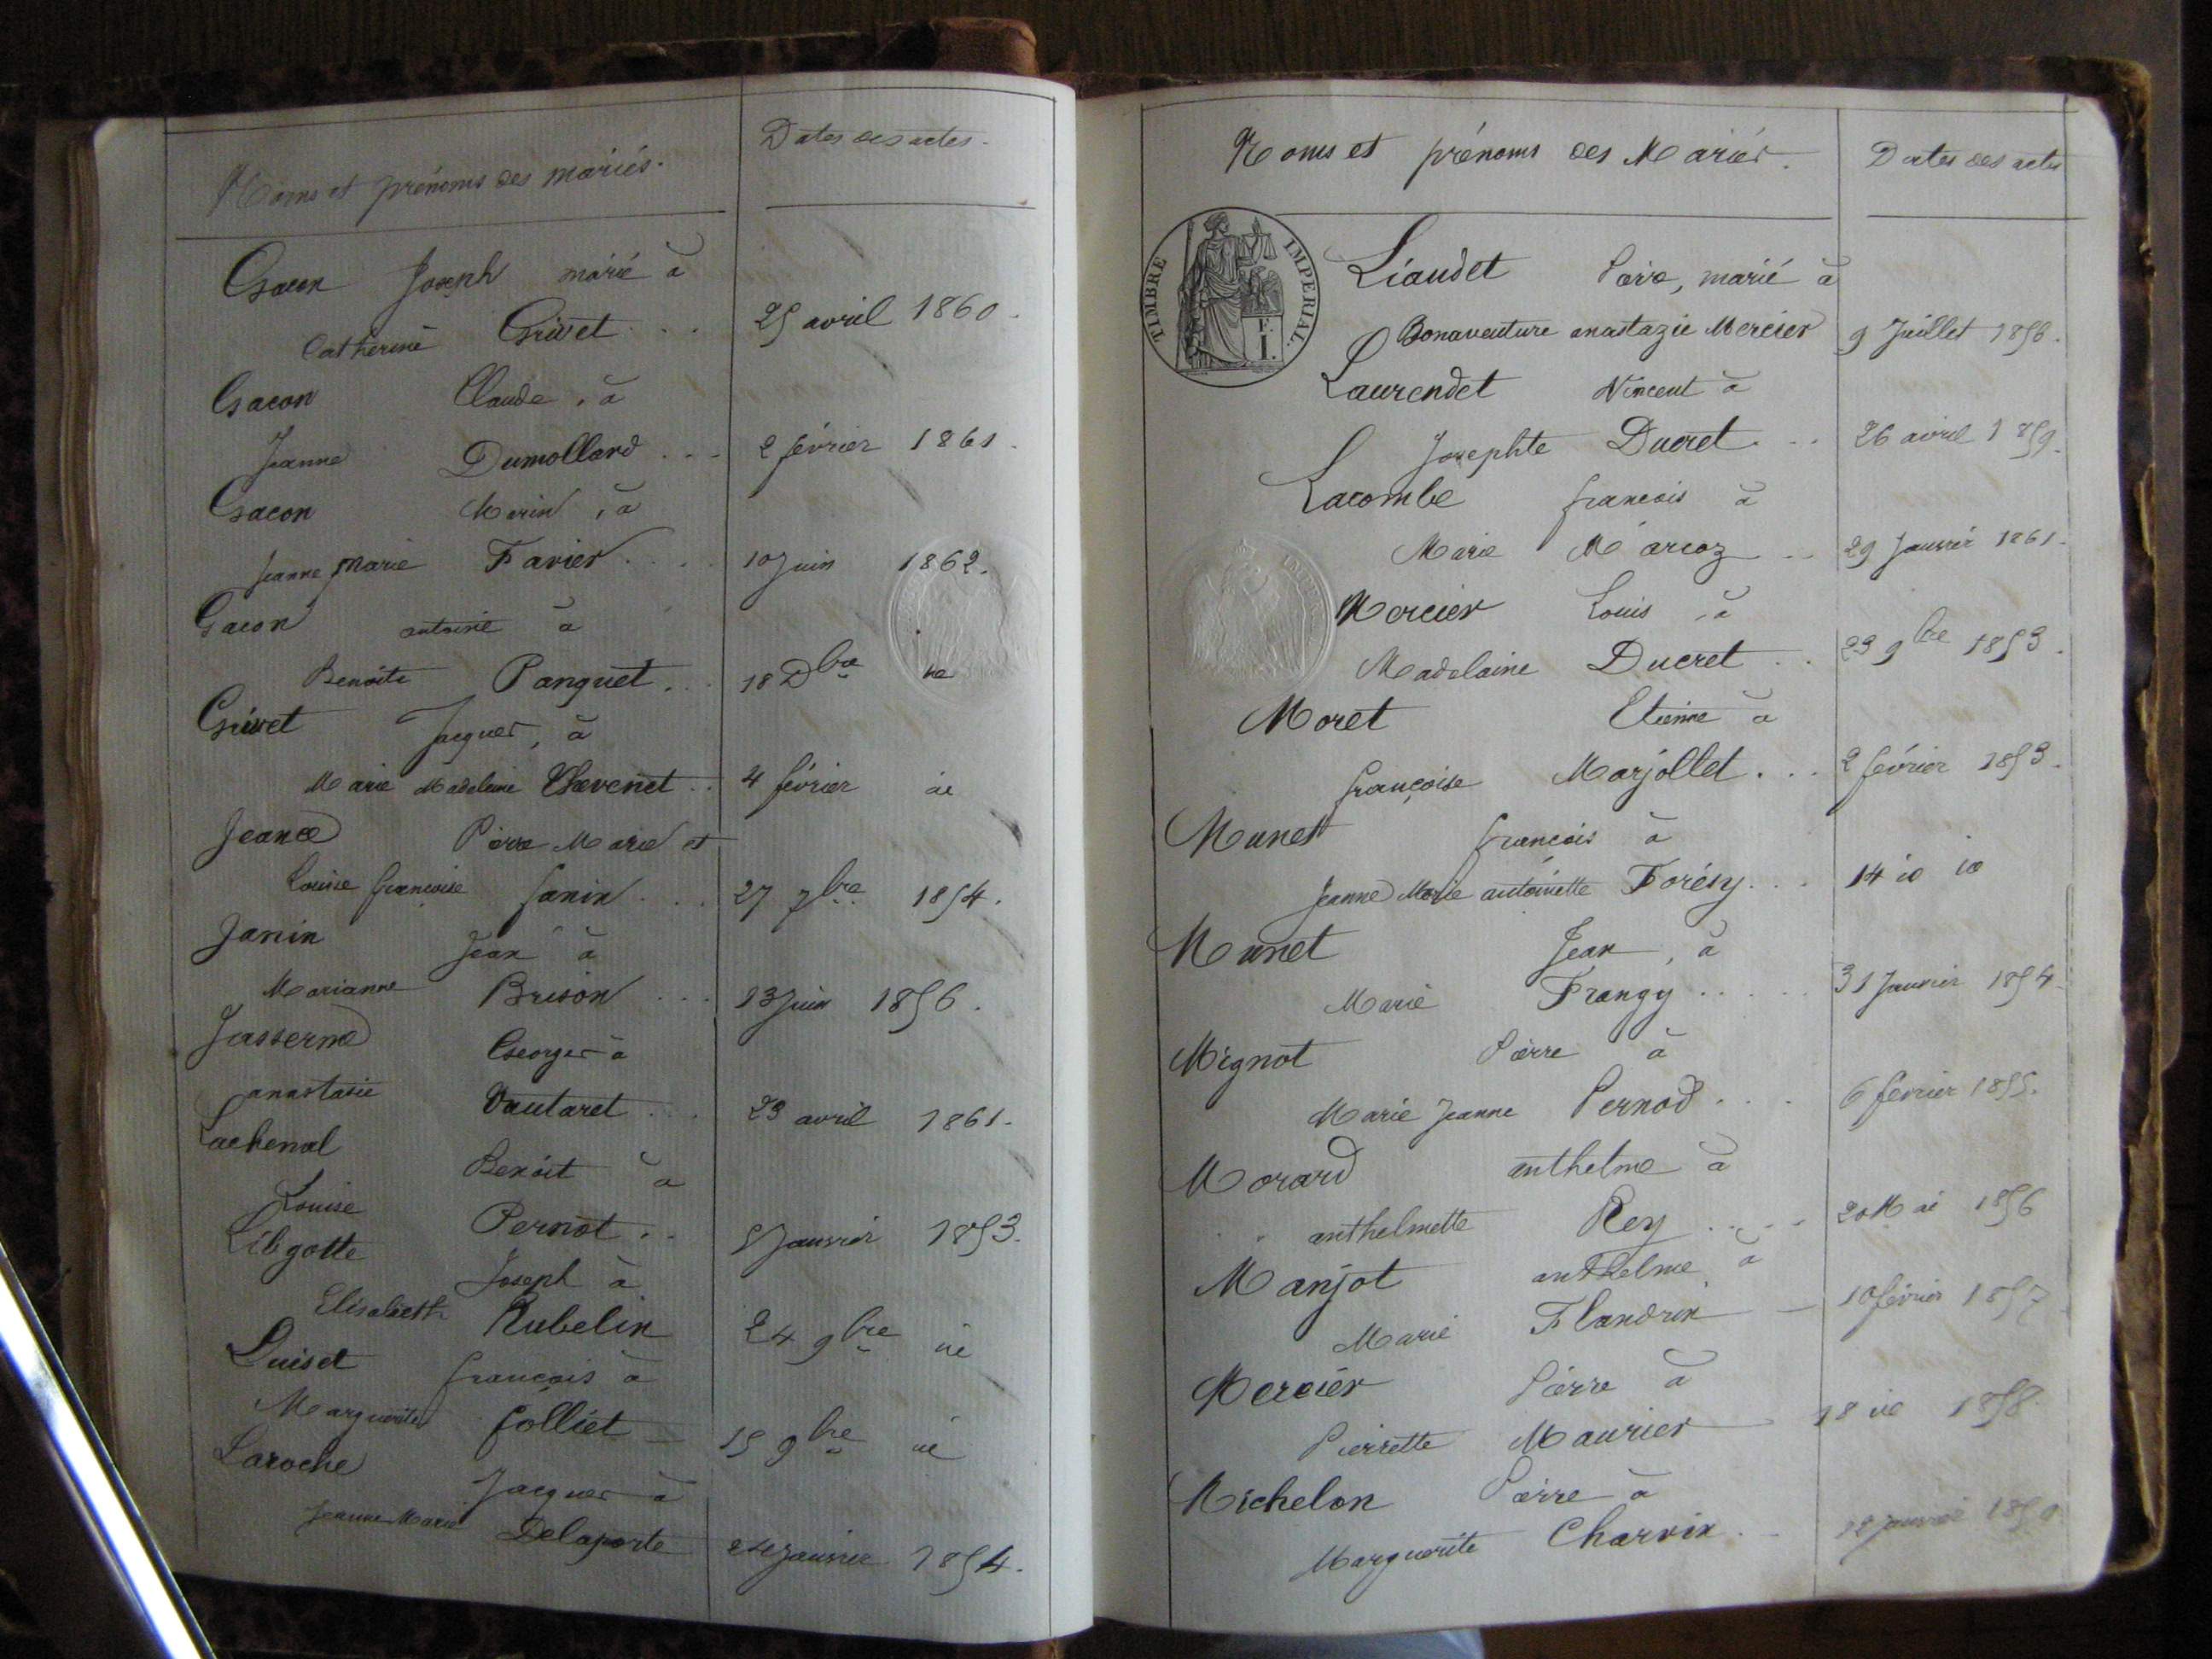 Noms et prénoms des mariés.
Dates des actes.
Gacon Joseph marié à
Catherine Grivet... 25 avril 1860.
Gacon Claude, à
Jeanne Dumollard... 2 février 1861.
Gacon Marin, à
Jeanne Marie Favier.... 10 Juin 1862.
Gacon antoine à
Benoite Panguet... 18 Dbre
Grivet Jacques, à
Marie Madeleine Chevenet.. 4 février
Jeance Pierre Marie et
Louise françoise Janin... 27 7bre 1854.
Janin Jean à
Marianne Brison... 13 Juin 1856.
Jasserme Georges à
anastasie Vautaret... 23 avril 1861.
Lachenal Benoit à
Louise Pernot.. 5 Janvier 1853.
Libgotte Joseph à
Elisabeth Rubelin 24 9bre
Luiset françois à
Marguerite folliet 15 9bre
Laroche Jacques à
Jeanne Marie Delaporte 24 Janvier 1854.
Noms et prénoms des Mariés.
Dates des actes
TIMBRE IMPERIAL.
E.
I.
Liaudet Pierre, marié à
Bonaventure anastazie Mercier 9 Juillet 1856.
Laurendet Vincent à
Josephte Ducret... 26 avril 1859.
Lacombe francois à
Marie Marcoz.. 29 Janvier 1861.
Mercier Louis, à
Madelaine Ducret.. 23 9bre 1853.
Moret Etienne à
françoise Marjollet... 2 février 1853.
Munet francois à
Jeanne Marie antoinette Forésy... 14 io io
Munet Jean, à
Marie Frangy..... 31 Janvier 1854.
Mignot Pierre à
Marie Jeanne Pernod.... 6 fevrier 1855.
Morard anthelme à
anthelmette Rey.... 20 Mai 1856
Manjot anthelme, à
Marie Flandrin 10 février 1857
Mercier Pierre à
Pierrette Maurier 18 1858.
Michelon Pierre à
Marguerite Charvin.. janvier